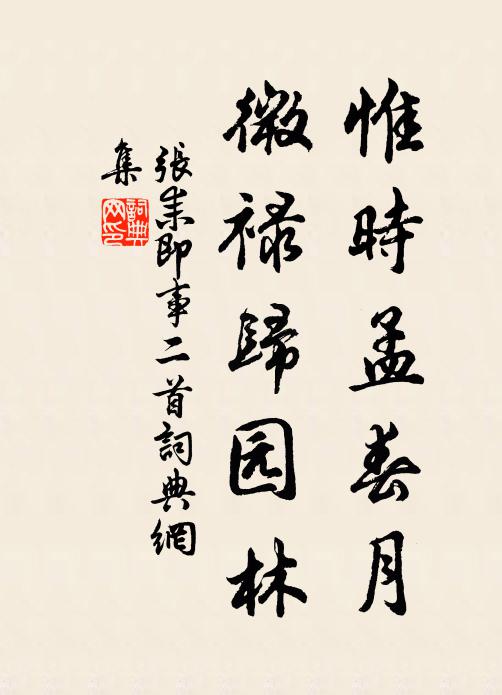 惟時孟春月
微禄歸园林
張耒即事二首詞典網
集
詞典
网印